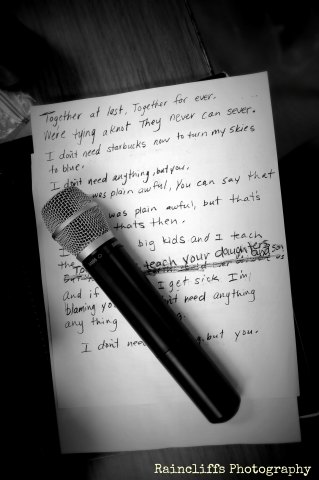 Together at last, Together for ever.
Were tying aknot They never can sever.
I don't need starbucks now to turn my skies
to blue.
I don't need anything, but you.
was plain awful, You can say that
was plain awful, but that's
thats then.
big kids and I teach
the teach your daughters and son
And if I get sick I'm
blaming need anything
any thing
I dont need but you.
Raincliffs Photography